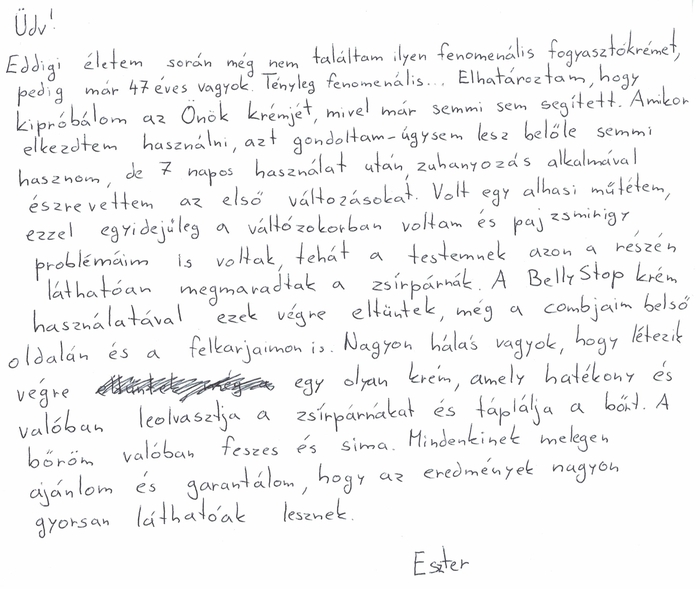 Üdv!
Eddigi életem során még nem találtam ilyen fenomenális fogyasztókrémet,
pedig már 47 éves vagyok. Tényleg fenomenális... Elhatároztam, hogy
kipróbálom az Önök krémjét, mivel már semmi sem segített. Amikor
elkezdtem használni, azt gondoltam-úgysem lesz belőle semmi
hasznom, de 7 napos használat után, zuhanyozás alkalmával
észrevettem az első változásokat. Volt egy alhasi műtétem,
ezzel egyidejűleg a változókorban voltam és pajzsmirigy
problémáim is voltak, tehát a testemnek azon a részén
láthatóan megmaradtak a zsírpárnák. A BellyStop krém
használatával ezek végre eltűntek, még a combjaim belső
oldalán és a felkarjaimon is. Nagyon hálás vagyok, hogy létezik
végre egy olyan krém, amely hatékony és
valóban leolvasztja a zsírpárnákat és táplálja a bőrt. A
bőröm valóban feszes és sima. Mindenkinek melegen
ajánlom és garantálom, hogy az eredmények nagyon
gyorsan láthatóak lesznek.
Eszter